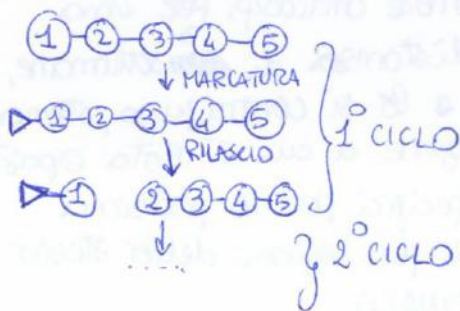 1 2 3 4 5
↓ MARCATURA
1 2 3 4 5
↓ RILASCIO
1 2 3 4 5
↓
......
1° CICLO
2° CICLO